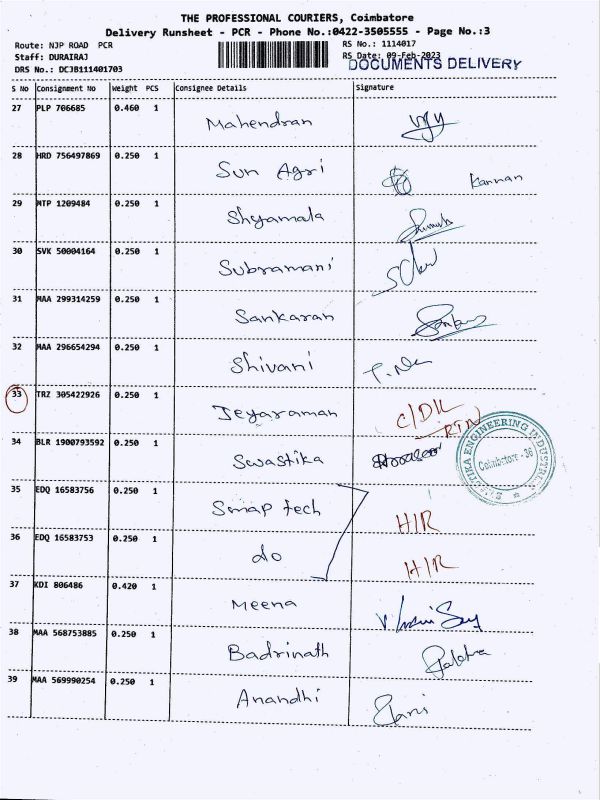 THE PROFESSIONAL COURIERS, Coimbatore
Delivery Runsheet - PCR - Phone No.:0422-3505555 - Page No.:3
Route: NJP ROAD PCR RS No.: 1114017
Staff: DURAIRAJ RS Date: 09-Feb-2023
DOCUMENTS DELIVERY
DRS No.: DCJB111401703
S No Consignment No Weight PCS Consignee Details Signature
27 PLP 706685 0.460 1 Mahendran
28 HRD 756497869 0.250 1 Sun Agri Kannan
29 MTP 1209484 0.250 1 Shyamala
30 SVK 50004164 0.250 1 Subramani
31 MAA 299314259 0.250 1 Sankaran
32 MAA 296654294 0.250 1 Shivani
33 TRZ 305422926 0.250 1 Jeyaraman C/DL RTN
34 BLR 1900793592 0.250 1 Swastika
SWASTIKA ENGINEERING INDUSTRIES
Coimbatore - 36
35 EDQ 16583756 0.250 1 Smap tech H/R
36 EDQ 16583753 0.250 1 do H/R
37 KDI 806486 0.420 1 Meena
38 MAA 568753885 0.250 1 Badrinath
39 MAA 569990254 0.250 1 Anandhi